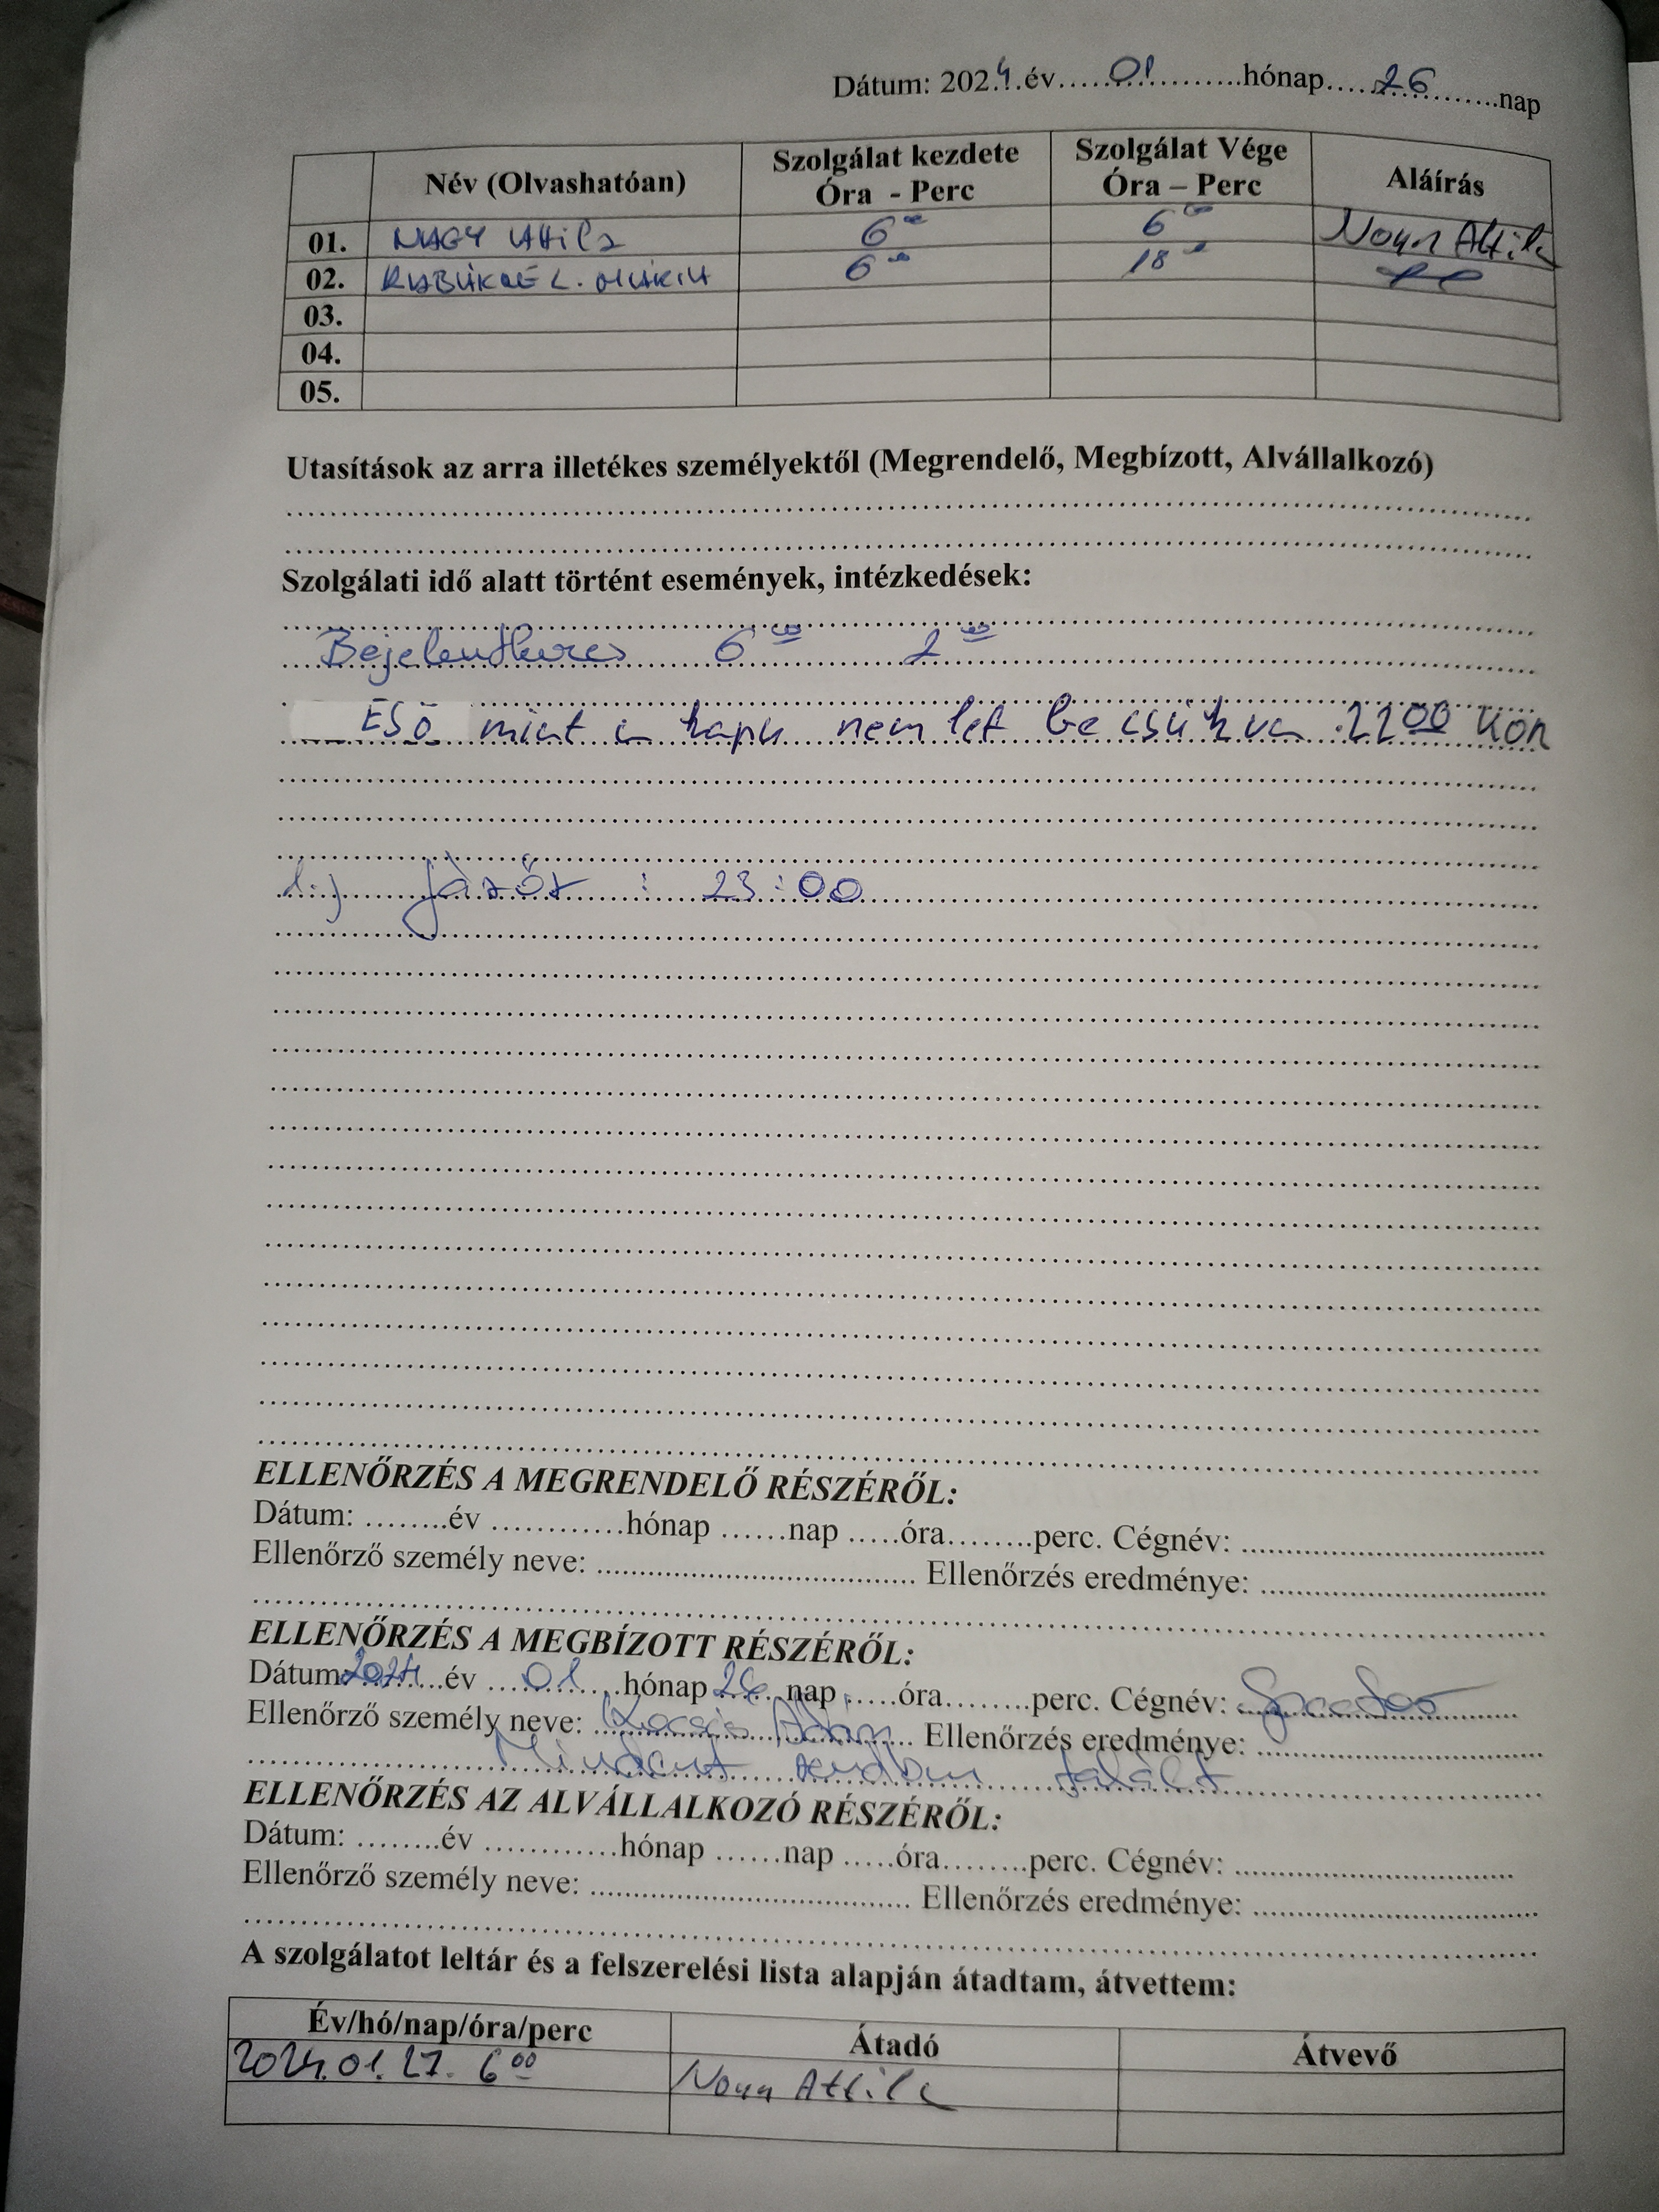 Dátum: 2024 év 01 hónap 26 nap
Név (Olvashatóan) Szolgálat kezdete Óra - Perc Szolgálat Vége Óra – Perc Aláírás
01. NAGY Attila 6 00 6 00 Nagy Attila
02. 6 00 18 00
03.
04.
05.
Utasítások az arra illetékes személyektől (Megrendelő, Megbízott, Alvállalkozó)
Szolgálati idő alatt történt események, intézkedések:
6 00 2 00
ESő miat a kapu nem let be csukva 22 00 kor
1.) Járőr : 23:00
ELLENŐRZÉS A MEGRENDELŐ RÉSZÉRŐL:
Dátum: ........év ............hónap ......nap .....óra........perc. Cégnév: ....................
Ellenőrző személy neve: .................... Ellenőrzés eredménye: ....................
ELLENŐRZÉS A MEGBÍZOTT RÉSZÉRŐL:
Dátum 2024 év 01 hónap 26 nap .....óra........perc. Cégnév:
Ellenőrző személy neve: Kocsis Ádám Ellenőrzés eredménye: ....................
Mindent rendben talált
ELLENŐRZÉS AZ ALVÁLLALKOZÓ RÉSZÉRŐL:
Dátum: ........év ............hónap ......nap .....óra........perc. Cégnév: ....................
Ellenőrző személy neve: .................... Ellenőrzés eredménye: ....................
A szolgálatot leltár és a felszerelési lista alapján átadtam, átvettem:
Év/hó/nap/óra/perc Átadó Átvevő
2024.01.27. 6 00 Nagy Attila